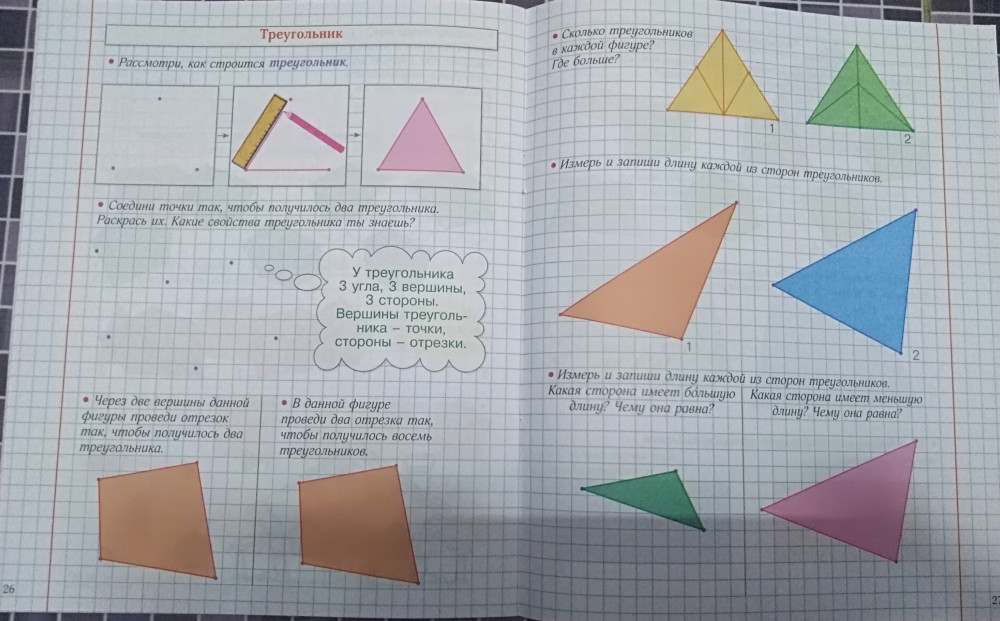 Треугольник
• Рассмотри, как строится треугольник.
• Соедини точки так, чтобы получилось два треугольника.
Раскрась их. Какие свойства треугольника ты знаешь?
У треугольника
3 угла, 3 вершины,
3 стороны.
Вершины треуголь-
ника – точки,
стороны – отрезки.
• Через две вершины данной
фигуры проведи отрезок
так, чтобы получилось два
треугольника.
• В данной фигуре
проведи два отрезка так,
чтобы получилось восемь
треугольников.
26
• Сколько треугольников
в каждой фигуре?
Где больше?
1
2
• Измерь и запиши длину каждой из сторон треугольников.
1
2
• Измерь и запиши длину каждой из сторон треугольников.
Какая сторона имеет бо́льшую
длину? Чему она равна?
Какая сторона имеет меньшую
длину? Чему она равна?